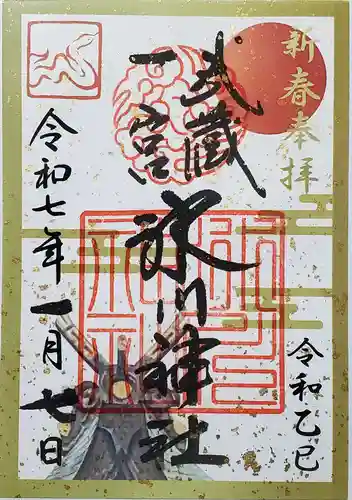 新春奉拝
武蔵
一宮
氷川神社
令和七年一月七日
令和乙巳